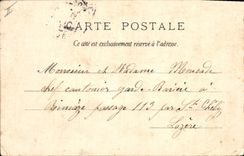 CARTE POSTALE
Ce côté est exclusivement réservé à l'adresse.
Monsieur et Madame
chef cantonnier garde-Barière à
passage 113 par St Chély
Lozère